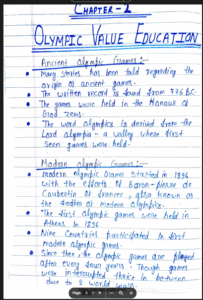 CHAPTER - 1
OLYMPIC VALUE EDUCATION
Ancient Olympic Games :-
Many stories has been told regarding the
origin of ancient games.
The written record is found from 776 BC.
The games were held in the Honour of
God Zeus.
The word Olympics is derived from the
Lord Olympia - a valley where first
seen games were held.
Modern Olympic Games :-
Modern Olympic Games started in 1896
with the efforts of Baron - pierre de
Coubertin of France, also known as
the father of modern Olympics.
The first Olympic games were held in
Athens in 1896
Nine Countries participated in first
modern olympic games.
Since then, the Olympic games are played
after every four years. Though games
were interrupted thrice in between
due to 2 world wars.